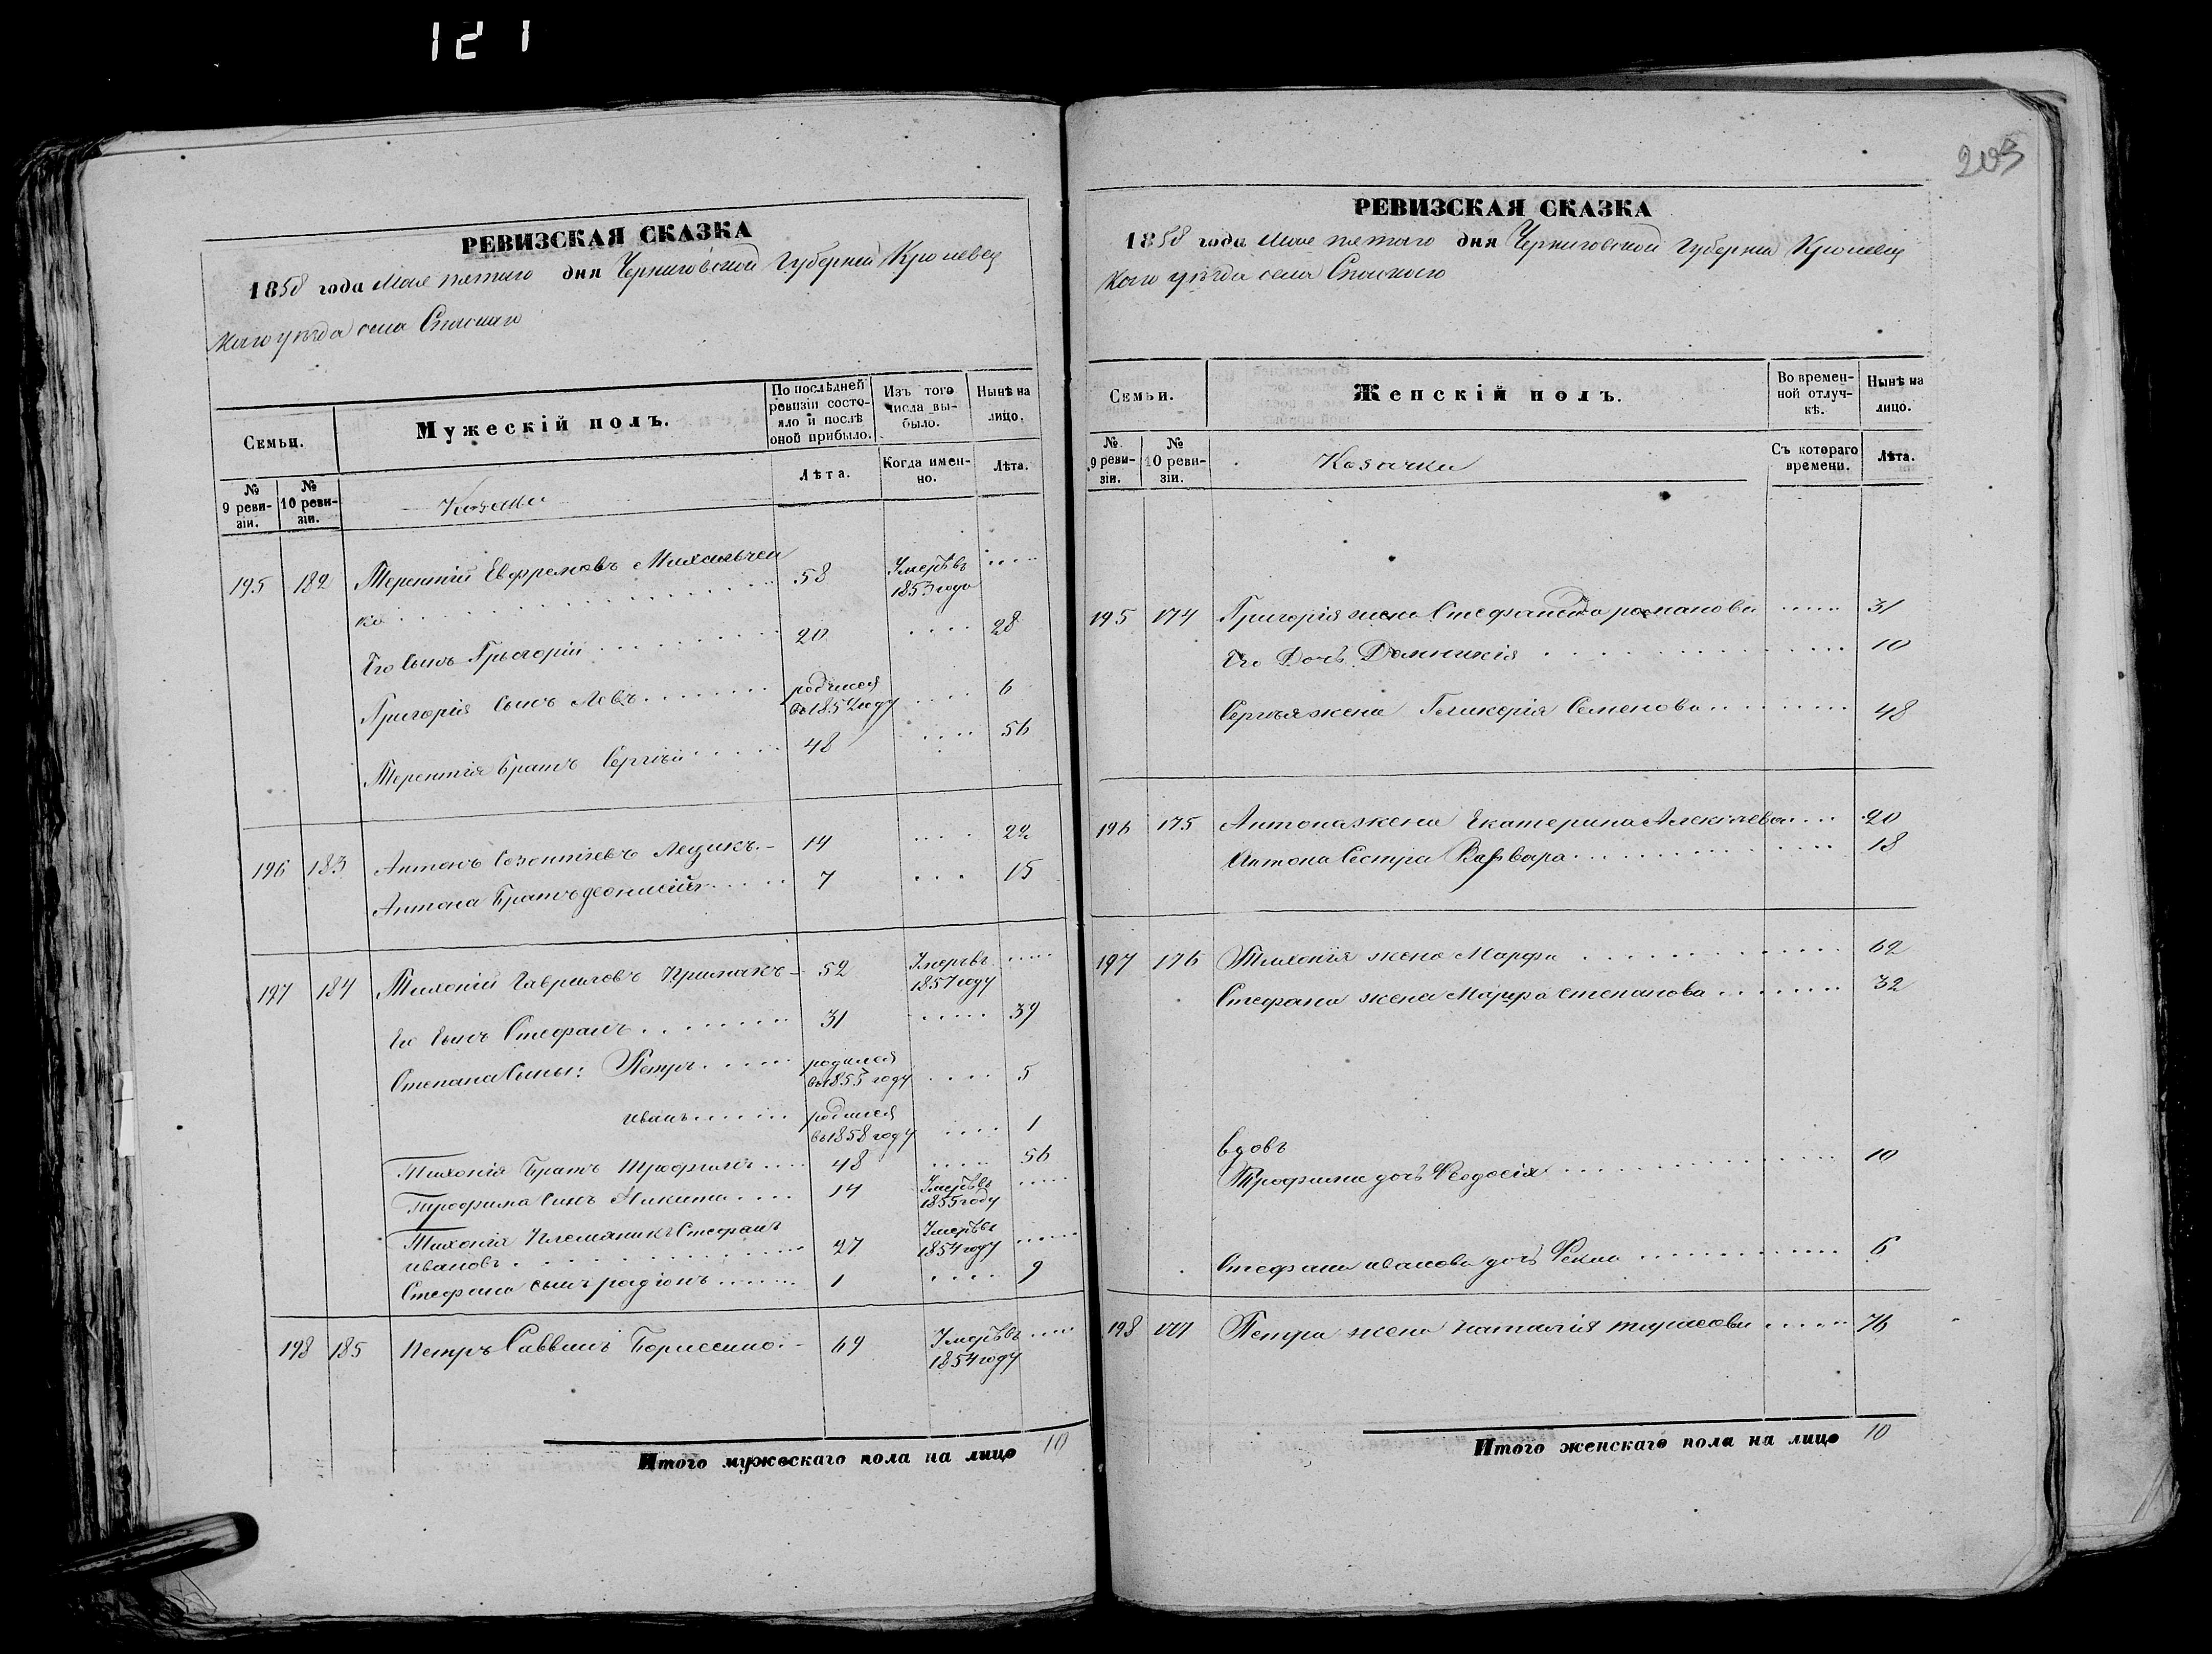 121
203
РЕВИЗСКАЯ СКАЗКА
1858 года Мая пятого дня Черниговской Губернии Кролевец
каго уезда села Спаского
Семьи.
Мужескій полъ.
По послѣдней ревизіи состояло и послѣ оной прибыло.
Изъ того числа выбыло.
Нынѣ на лицо.
№ 9 ревизіи.
№ 10 ревизіи.
Козаки
Лѣта.
Когда именно.
Лѣта.
195 182 Терентий Евфремовъ Михальчен
ко 58 Умерѣвъ 1853 года
Его сынъ Григорій 20 28
Григорія сынъ Левъ родился въ 1852 году 6
Терентія братъ Сергѣй 48 56
196 183 Антонъ Созонтіевъ Лещикъ 14 22
Антона братъ деонисій 7 15
197 184 Тихоній Гавриловъ Примакъ 52 Умервъ 1857 году
Его сынъ Стефанъ 31 39
Степана сыны: Петръ родился въ 1853 году 5
иванъ родился въ 1858 году 1
Тихонія братъ Трофимъ 48 56
Трофима синъ Никита 14 Умерѣвъ 1855 году
Тихонія племяникъ Стефанъ
ивановъ 27 Умерѣвъ 1854 году
Стефана сынъ родіонъ 1 9
198 185 Петръ Саввинъ Бориссино 69 Умерѣвъ 1854 году
Итого мужескаго пола на лицо 10
РЕВИЗСКАЯ СКАЗКА
1858 года Мая пятаго дня Черниговской Губернии Кролевец
каго уѣзда села Спаского
Семьи.
Женскій полъ.
Во временной отлучкѣ.
Нынѣ на лицо.
№ 9 ревизіи.
№ 10 ревизіи.
Козачки
Съ котораго времени.
Лѣта.
195 174 Григорія жена Стефанида романова 31
Его дочь Домникія 10
Сергѣя жена Гликерія Семенова 48
196 175 Антона жена Екатерина Алексѣева 20
Антона сестра Варвара 18
197 176 Тихонія жена Марфа 62
Стефана жена Марфа степанова 32
вдовъ
Трофима дочь Феодосія 10
Стефана иванова дочь Фекла 6
198 177 Петра жена наталія тарасова 76
Итого женскаго пола на лицо 10